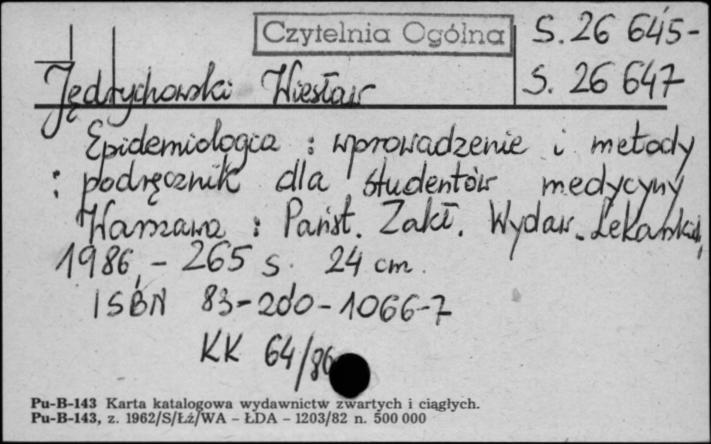 Czytelnia Ogólna
S. 26 645-
S. 26 647
Jędrychowski Wiesław
Epidemiologia : wprowadzenie i metody
: podręcznik dla studentów medycyny
Warszawa : Państ. Zakł. Wydaw. Lekarskich,
1986. - 265 s. 24 cm.
ISBN 83-200-1066-7
KK 64/86
Pu-B-143 Karta katalogowa wydawnictw zwartych i ciągłych.
Pu-B-143, z. 1962/S/Łż/WA - ŁDA - 1203/82 n. 500 000